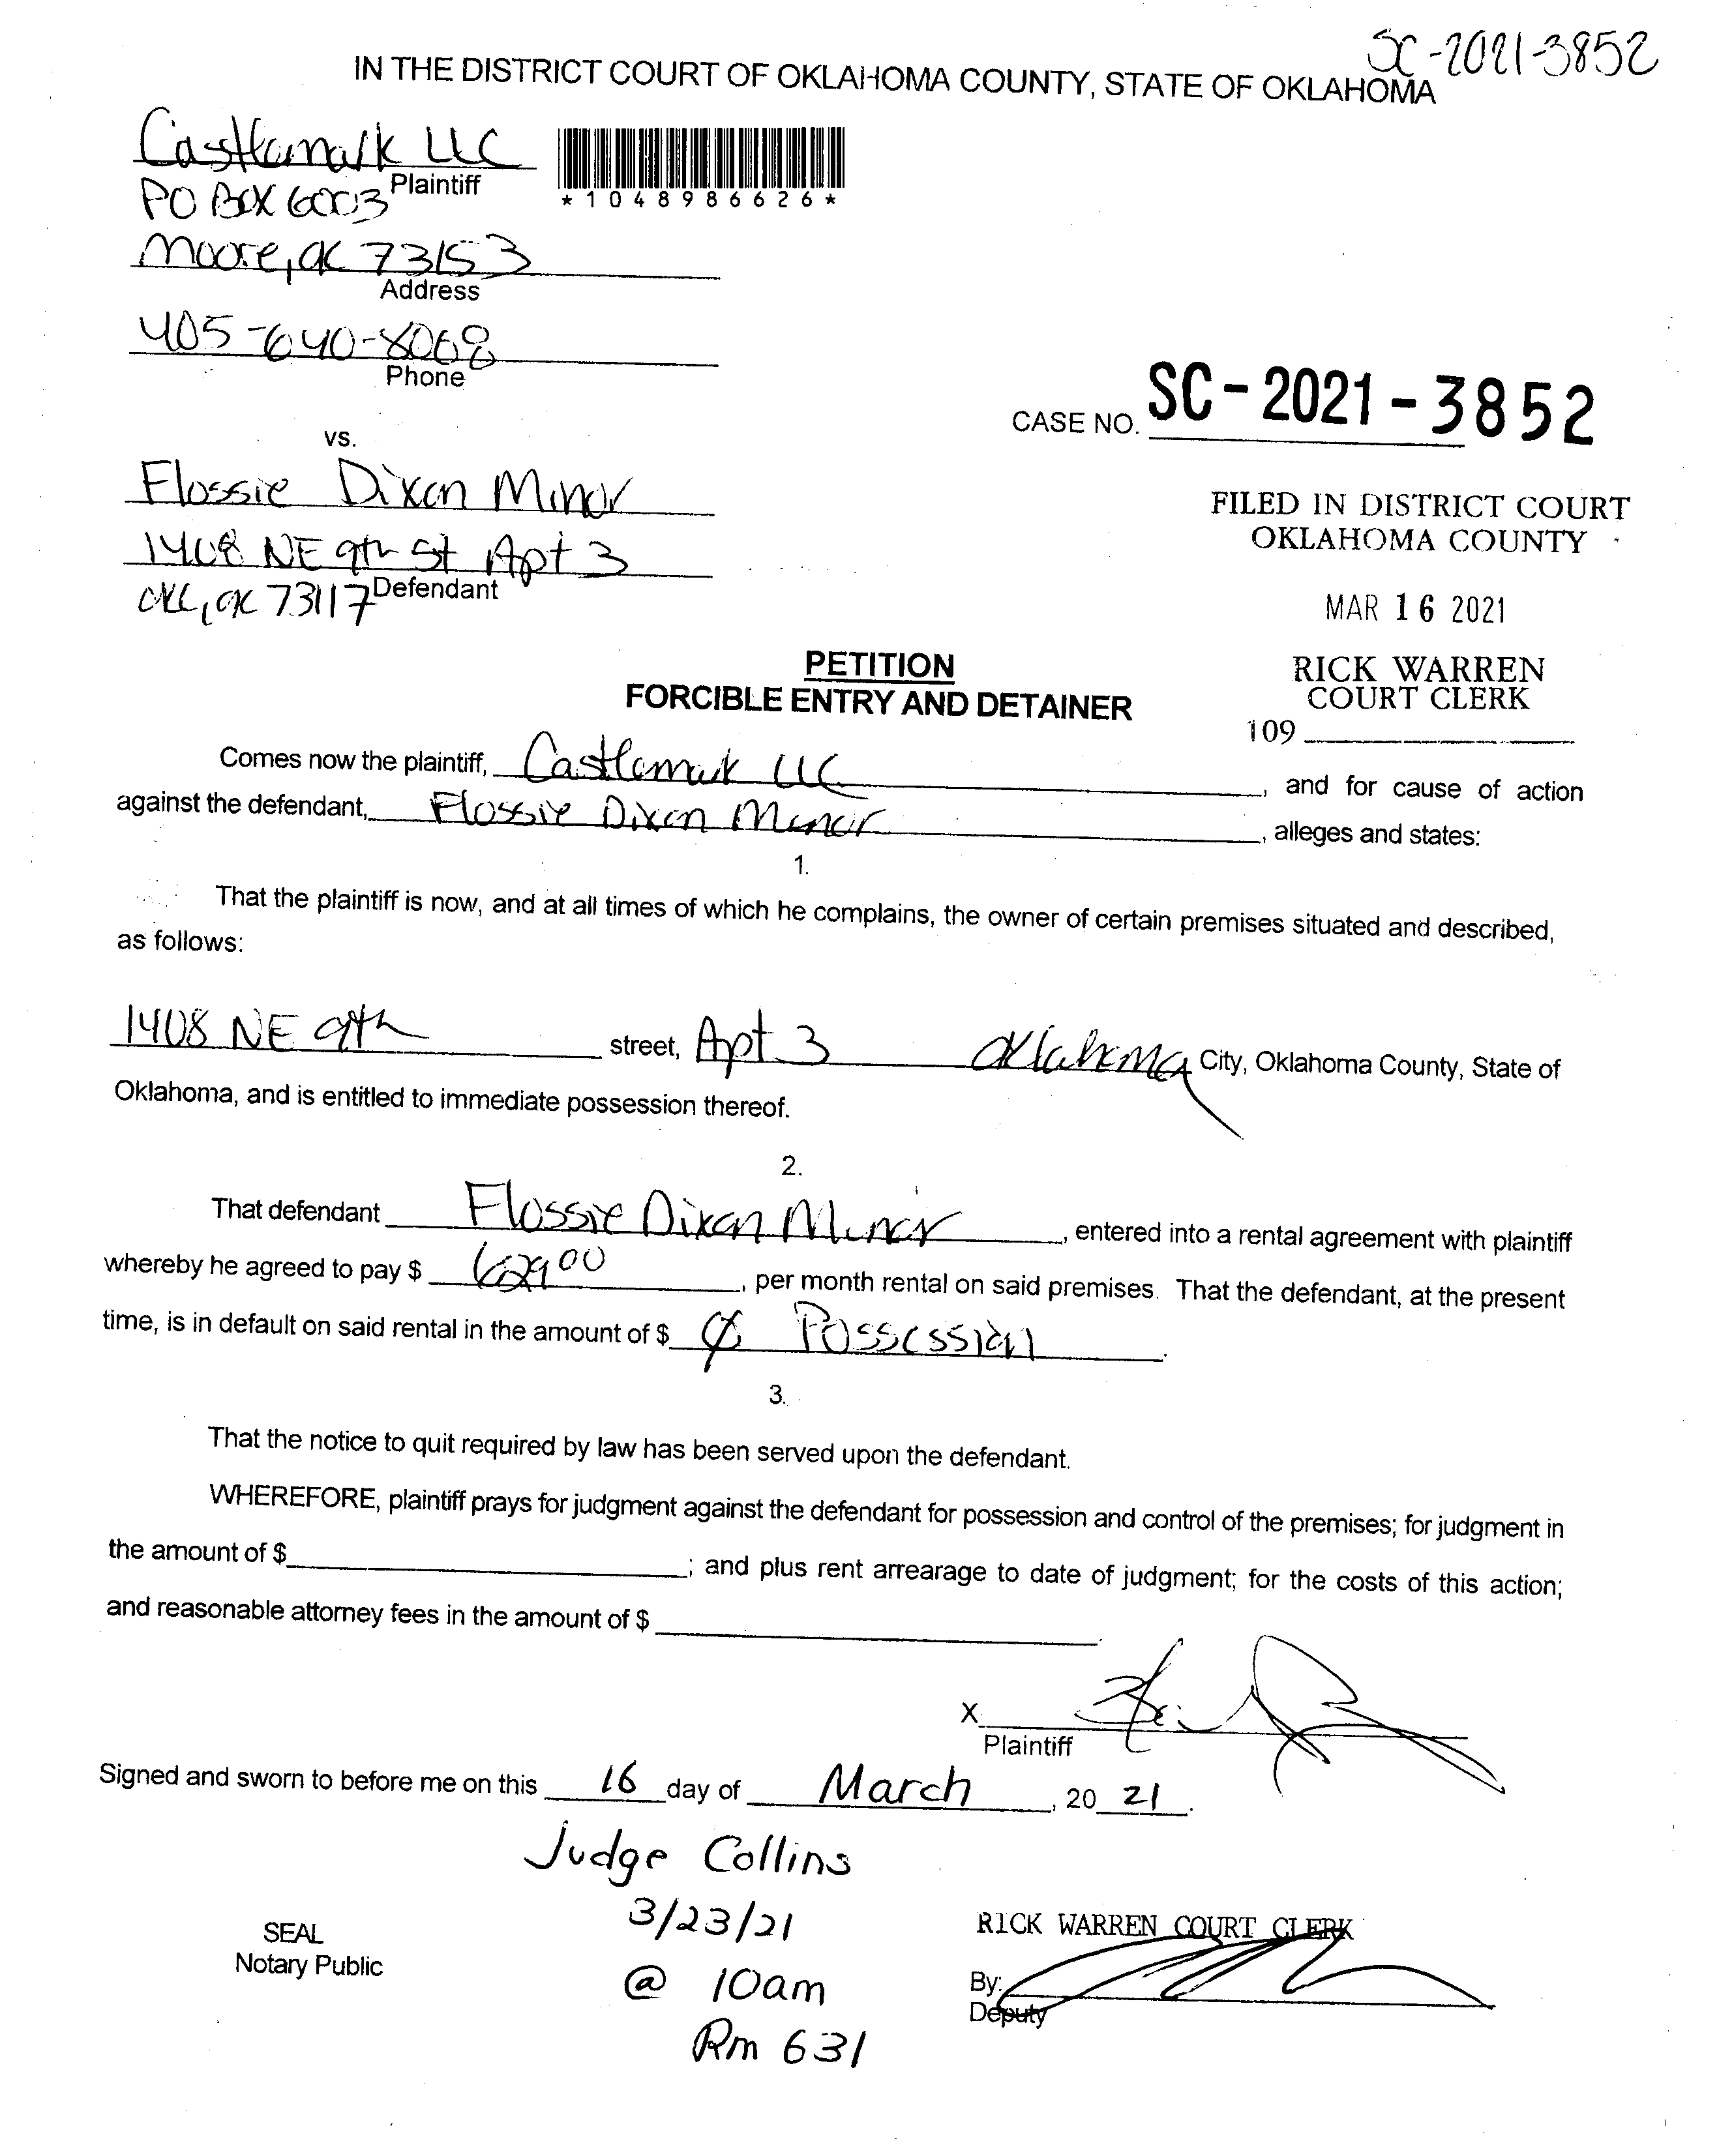 SC-2021-3852
IN THE DISTRICT COURT OF OKLAHOMA COUNTY, STATE OF OKLAHOMA
Castlemark LLC
Plaintiff
*1048986626*
PO BOX 6003
Moore, OK 73153
Address
405-640-8068
Phone
CASE NO. SC-2021-3852
vs.
Flossie Dixon Minor
1408 NE 9th St Apt 3
Defendant
OKC, OK 73117
FILED IN DISTRICT COURT
OKLAHOMA COUNTY
MAR 16 2021
RICK WARREN
COURT CLERK
109
PETITION
FORCIBLE ENTRY AND DETAINER
Comes now the plaintiff, Castlemark LLC, and for cause of action
against the defendant, Flossie Dixon Minor, alleges and states:
1.
That the plaintiff is now, and at all times of which he complains, the owner of certain premises situated and described,
as follows:
1408 NE 9th street, Apt 3 Oklahoma City, Oklahoma County, State of
Oklahoma, and is entitled to immediate possession thereof.
2.
That defendant Flossie Dixon Minor, entered into a rental agreement with plaintiff
whereby he agreed to pay $ 629 00, per month rental on said premises. That the defendant, at the present
time, is in default on said rental in the amount of $ Ø Possession.
3.
That the notice to quit required by law has been served upon the defendant.
WHEREFORE, plaintiff prays for judgment against the defendant for possession and control of the premises; for judgment in
the amount of $ ; and plus rent arrearage to date of judgment; for the costs of this action;
and reasonable attorney fees in the amount of $ .
X
Plaintiff
Signed and sworn to before me on this 16 day of March, 20 21.
Judge Collins
3/23/21
@ 10am
Rm 631
SEAL
Notary Public
RICK WARREN COURT CLERK
By:
Deputy